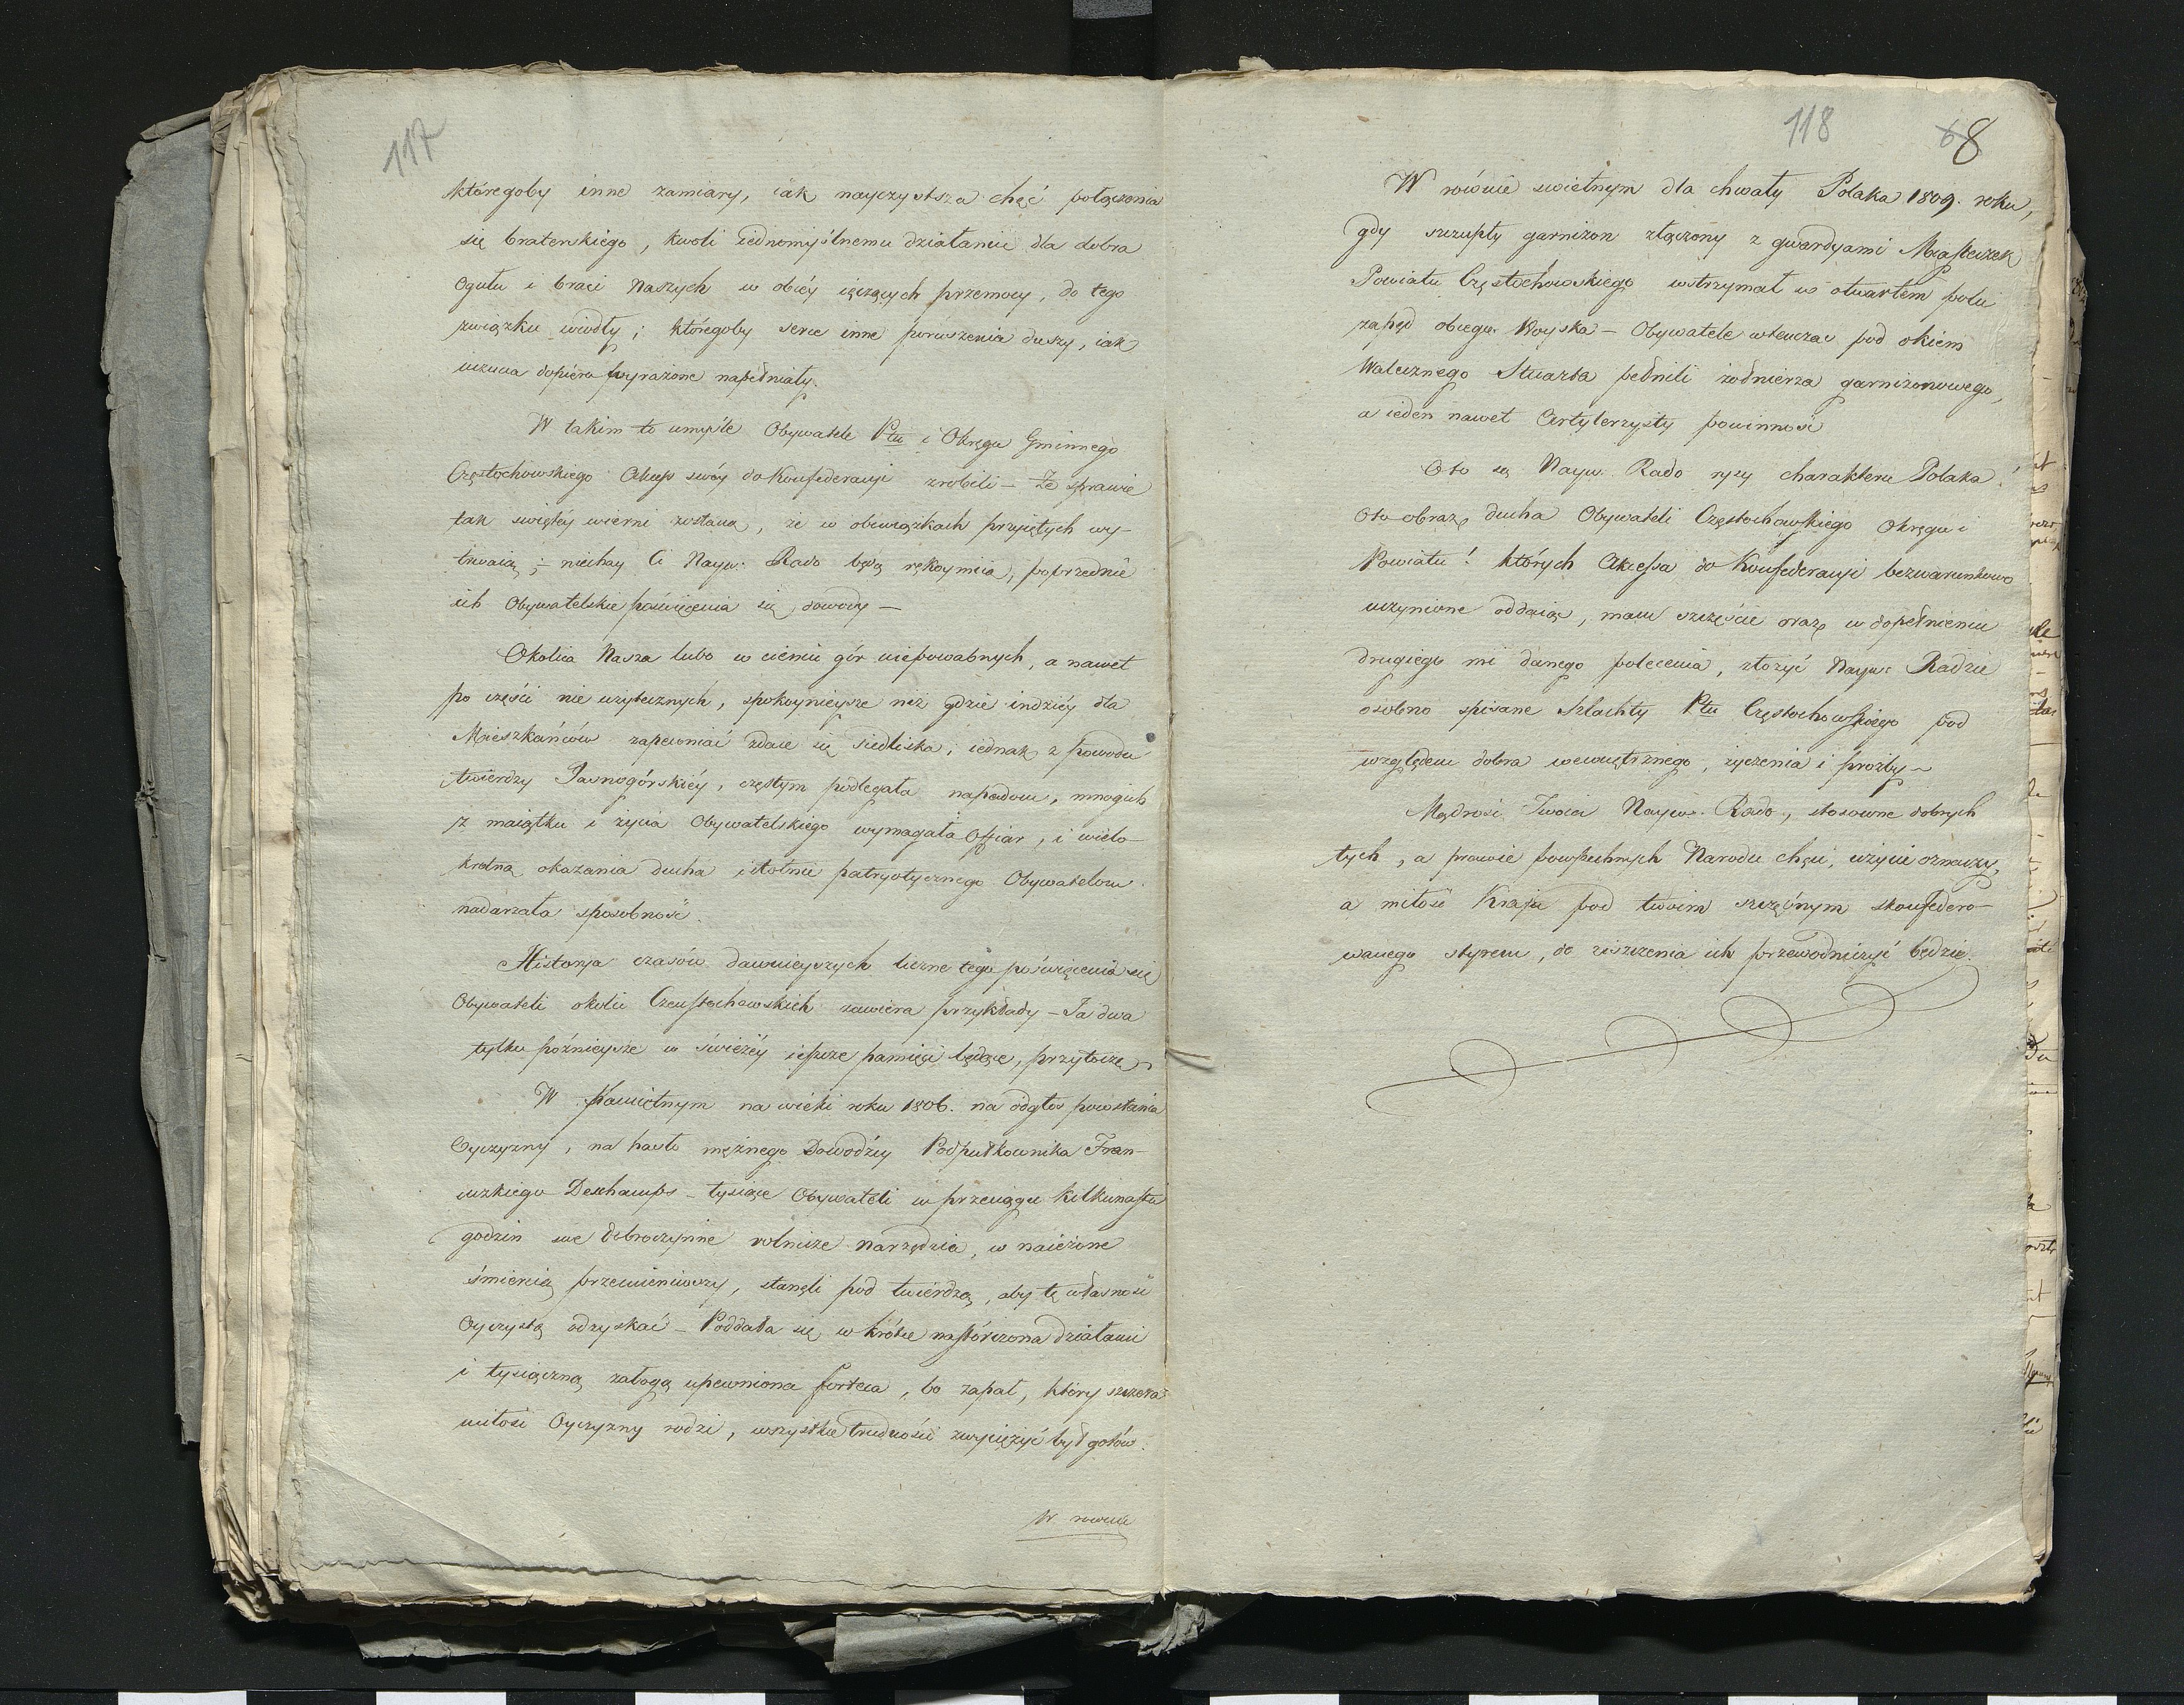 117
któregoby inne zamiary, iak nayczystsza chęć połączenia
się braterskiego, kwoli iednomyślnemu działaniu dla dobra
Ogółu i braci Naszych w obcéy ięczących przemocy, do tego
związku wiodły; któregoby serce inne poruszenia duszy, iak
uczucia dopiéro wyrażone napełniały.
W takim to umyśle Obywatele Ptu i Okręgu Gminnego
Częstochowskiego Akces swóy do Konfederacyi zrobili – Że sprawie
tak świętéy wierni zostaną, że w obowiązkach przyiętych wy-
trwaią; – niechay Ci Nayw: Rado będą rękoymią, poprzednie
ich Obywatelskie poświęcenia się dowody –
Okolica Nasza lubo w cieniu gór niepowabnych, a nawet
po części nie użytecznych, spokoynieysze niż gdzie indziéy dla
Mieszkańców zapewniać zdaie się siedliska; iednak z powodu
twierdzy Jasnogórskiéy, częstym podlegała napadom, mnogich
z maiątku i życia Obywatelskiego wymagała Offiar, i wielo-
krotną okazania ducha istotnie patryotycznego Obywatelom
nadarzała sposobność.
Historya czasów dawnieyszych liczne tego poświęcenia się
Obywateli okolic Czenstochowskich zawiera przykłady – Ja dwa
tylko późnieysze w świeżéy ieszcze pamięci będące, przytoczę –
W Pamiętnym na wieki roku 1806. na odgłos powstania
Oyczyzny, na hasło mężnego Dowódzcy Podpułkownika Fran-
cuzkiego Deschamps – tysiące Obywateli w przeciągu kilkunastu
godzin swe dobroczynne rolnicze narzędzia, w naieżone
śmiercią przemieniwszy, stanęli pod twierdzą, aby tę własność
Oyczystą odzyskać – Poddała się wkrótce nastórczona działami
i tysiączną załogą upewniona forteca, bo zapał, który szczera
miłość Oyczyzny rodzi, wszystkie trudności zwyciężyć był gotów.
W rownie
118
68
W równie swietnym dla chwały Polaka 1809. roku,
gdy szczupły garnizon złączony z gwardyami Miasteczek
Powiatu Częstochowskiego wstrzymał w otwartem polu
zapęd obcego Woyska – Obywatele wtenczas pod okiem
Walecznego Stuarta pełnili żołnierza garnizonowego,
a ieden nawet Artylerzysty powinność
Oto są Nayw. Rado rysy charakteru Polaka!
Oto obraz ducha Obywateli Częstochowskiego Okręgu i
Powiatu! których Akcessa do Konfederacyi bezwarunkowo
uczynione oddaiąc, mam szczęście oraz w dopełnieniu
drugiego mi danego polecenia, złożyć Nayw: Radzie
osobno spisane Szlachty Ptu Częstochowskiego pod
względem dobra wewnętrznego, życzenia i prozby –
Mądrość Twoia Nayw. Rado, stosowne dobrych
tych, a prawie powszechnych Narodu chęci, użycie oznaczy,
a miłość Kraju pod twoim szczęsnym skonfedero-
wanego styrem, do ziszczenia ich przewodniczyć będzie.